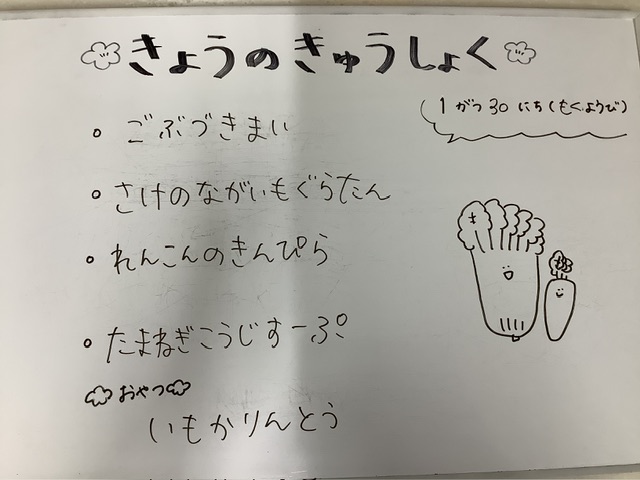 きょうのきゅうしょく
1がつ30にち(もくようび)
。ごぶづきまい
。さけのながいもぐらたん
。れんこんのきんぴら
。たまねぎこうじすーぷ
おやつ
いもかりんとう